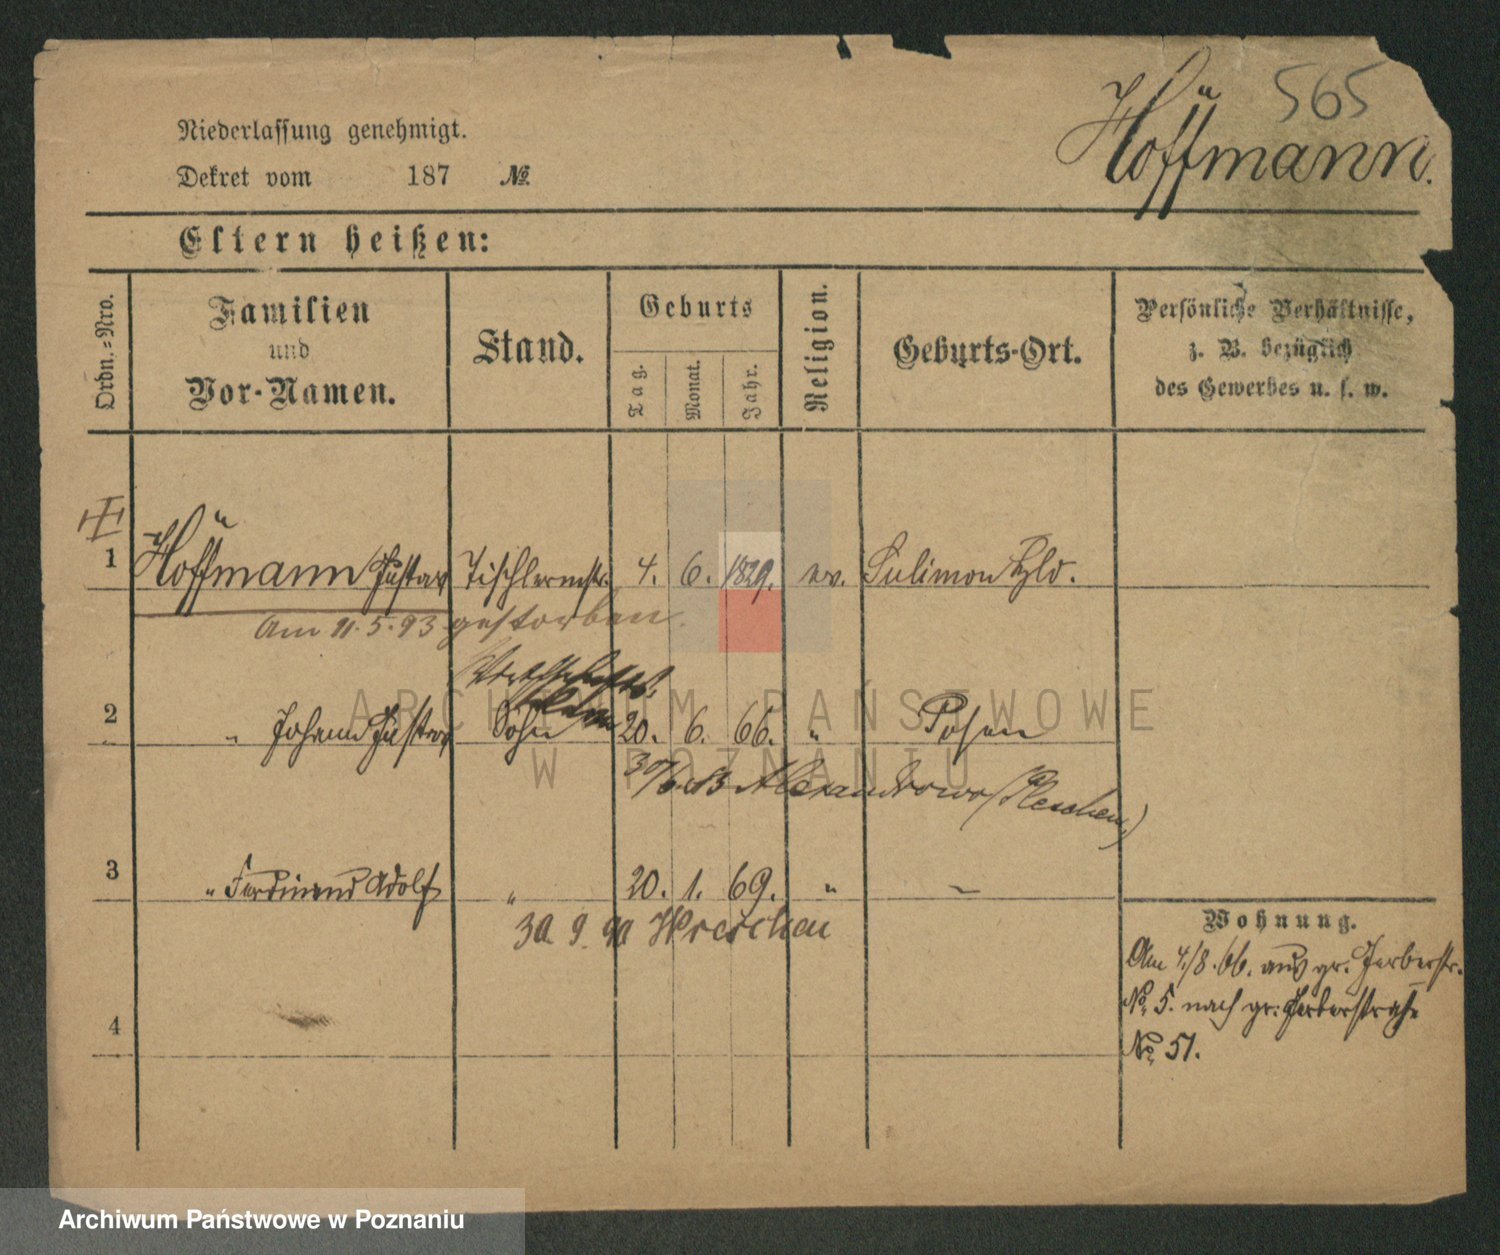 565
Hoffmann.
Niederlassung genehmigt.
Dekret vom 187 №
Eltern heißen:
Ordn.-Nro.
Familien und Vor-Namen.
Stand.
Geburts
Tag.
Monat.
Jahr.
Religion.
Geburts-Ort.
Persönliche Verhältnisse,
z. B. bezüglich
des Gewerbes u. s. w.
1 Hoffmann Gustav Tischlermstr. 4. 6. 1829. ev. Sulimon
Am 11.5.93 gestorben.
2 " Johann Gustav Sohn 20. 6. 66. " Posen
Alexandrowo (Pleschen)
3 " Ferdinand Adolf " 20. 1. 69. " –
30 9 90 Wreschen
4
Wohnung.
Am 4./8. 66. aus gr. Gerberstr.
No. 5. nach gr. Gerberstraße
No. 51.
ARCHIWUM PAŃSTWOWE
W POZNANIU
Archiwum Państwowe w Poznaniu